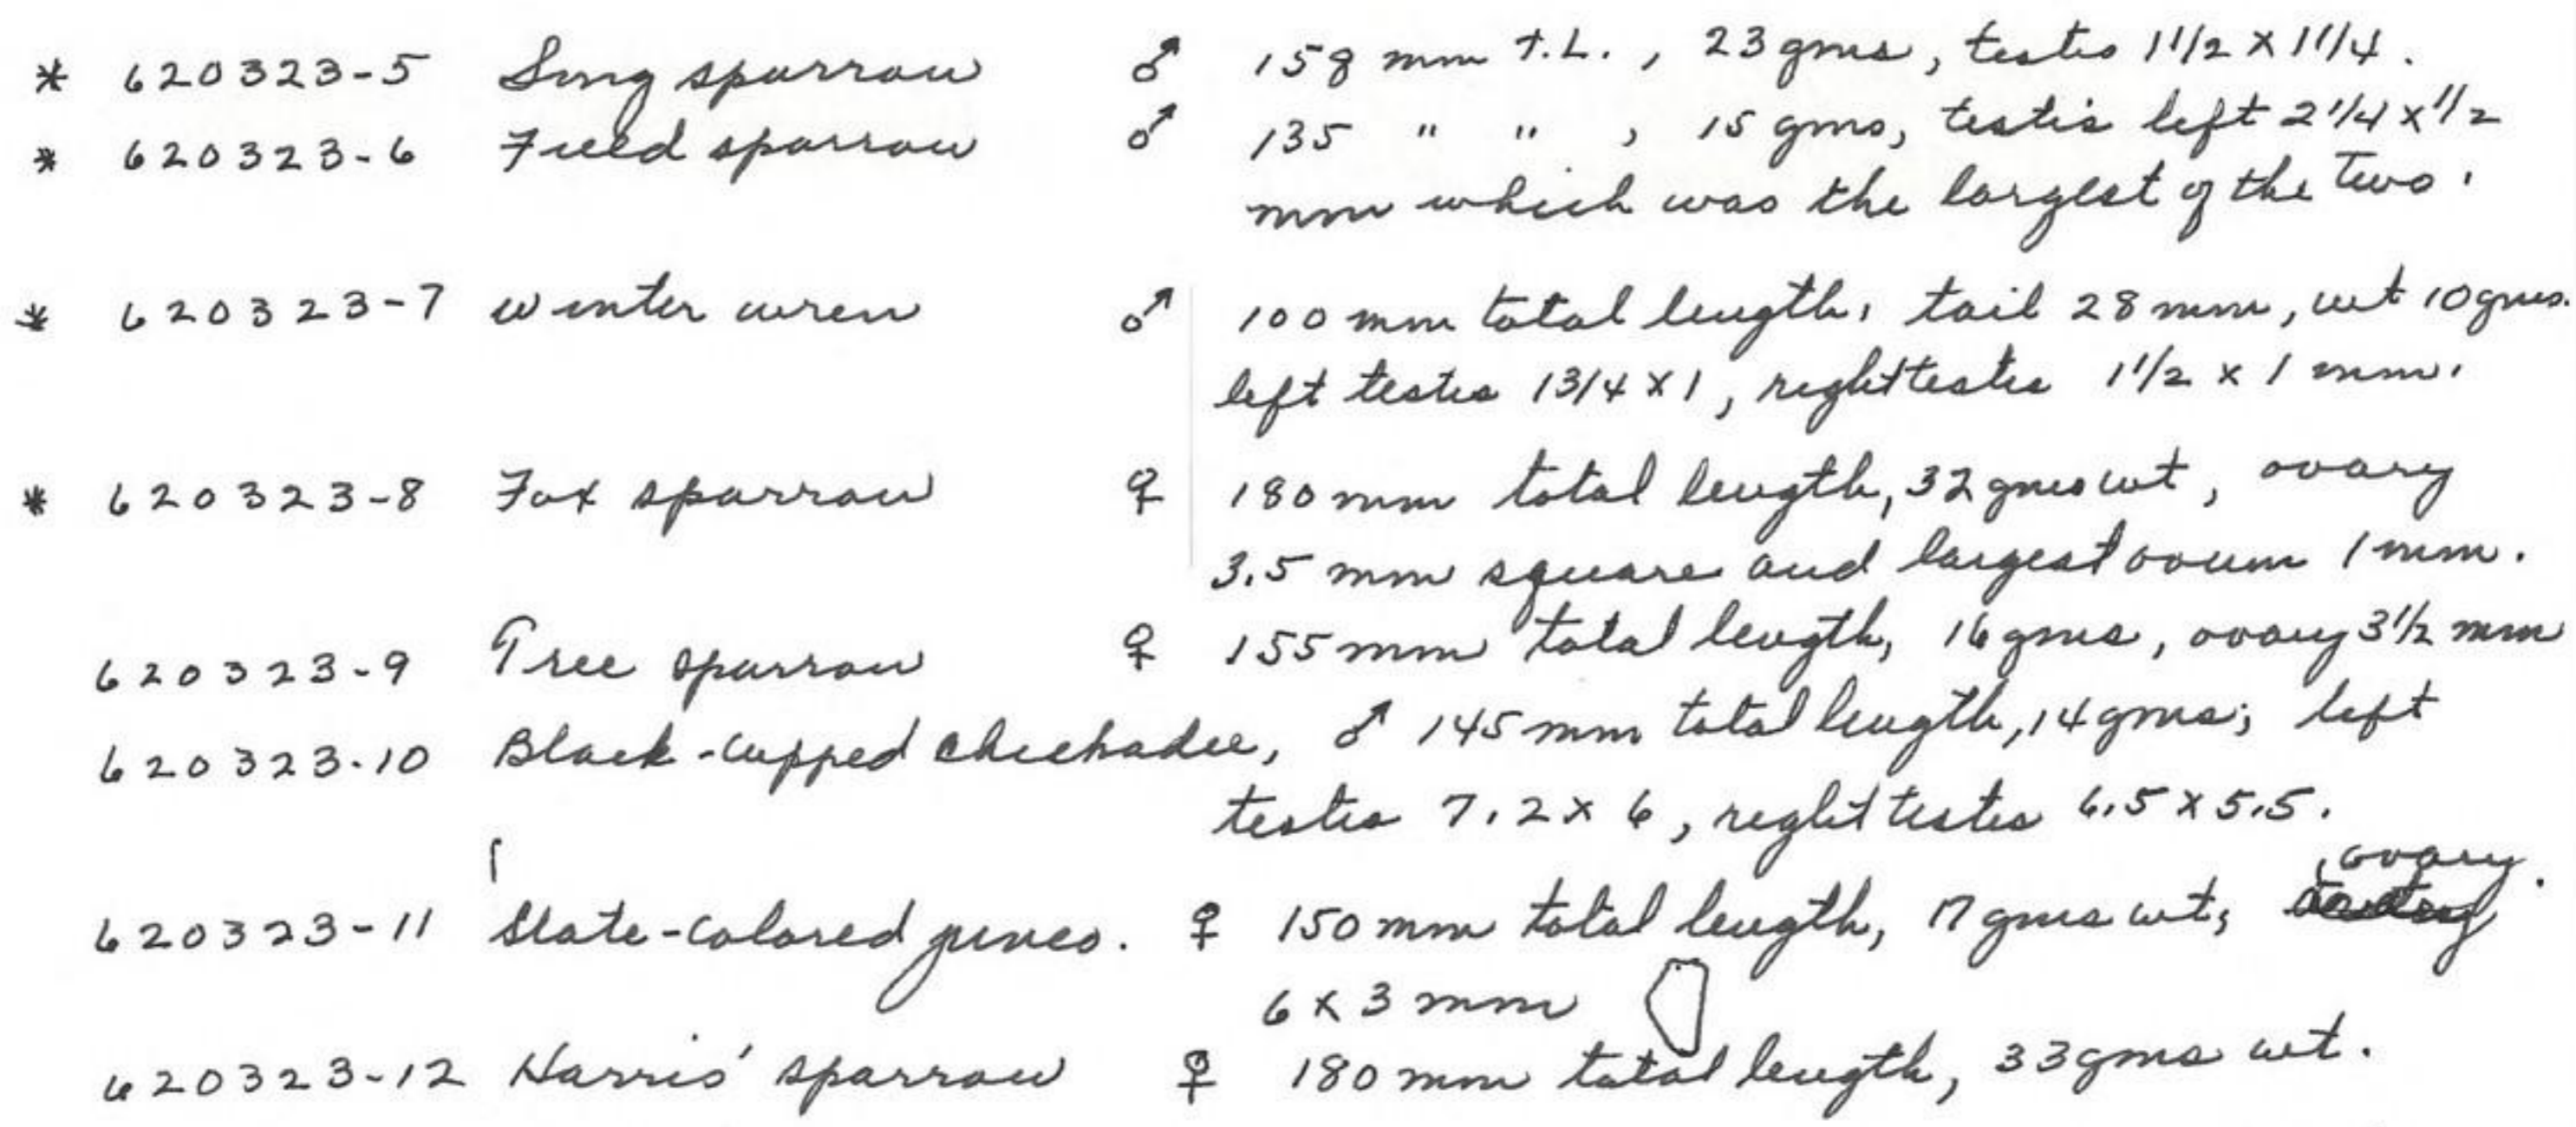 * 620323-5 Song sparrow ♂ 158 mm T.L., 23 gms, testis 1 1/2 X 1 1/4.
* 620323-6 Field sparrow ♂ 135 " " , 15 gms, testis left 2 1/4 x 1/2
mm which was the largest of the two.
* 620323-7 winter wren ♂ 100 mm total length, tail 28 mm, wt 10 gms.
left testis 1 3/4 X 1, right testis 1 1/2 x 1 mm.
* 620323-8 Fox sparrow ♀ 180 mm total length, 32 gms wt, ovary
3.5 mm square and largest ovum 1 mm.
620323-9 Tree sparrow ♀ 155 mm total length, 16 gms, ovary 3 1/2 mm
620323-10 Black-capped chickadee, ♂ 145 mm total length, 14 gms; left
testis 7.2 x 6, right testis 6.5 X 5.5.
620323-11 Slate-colored junco. ♀ 150 mm total length, 17 gms wt, ovary.
6 x 3 mm
620323-12 Harris' sparrow ♀ 180 mm total length, 33 gms wt.